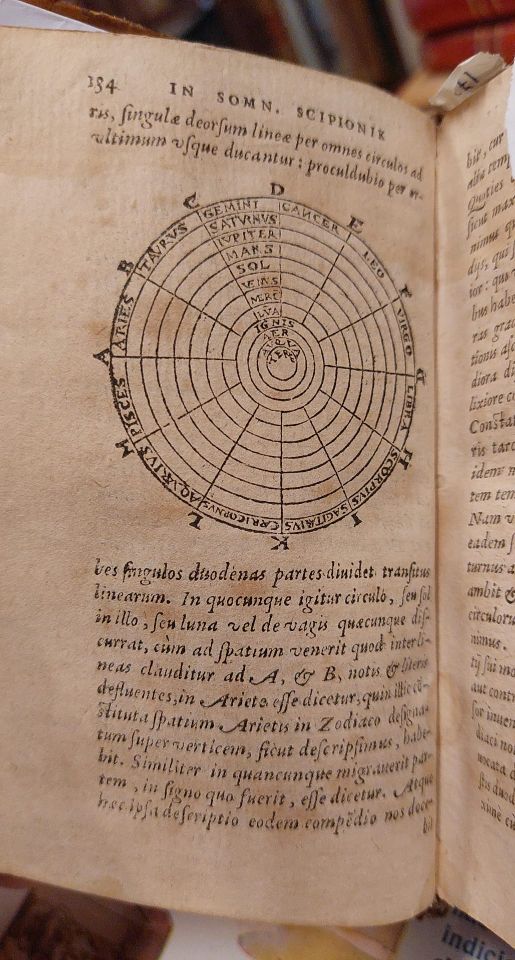 154 IN SOMN. SCIPIONIS
ris, singulæ deorsum lineæ per omnes circulos ad
ultimum vsque ducantur: proculdubio per or-
C D E
GEMINI CANCER
TAURUS SATVRNVS LEO
IVPITER
B MARS F
ARIES SOL VIRGO
VENVS
MERC
LVA
IGNIS
AER
AQVA
TER
A G
PISCES LIBRA
M H
AQVARIVS SCORPIVS
CAPRICORNVS SAGITRIVS
L K I
bes singulos duodenas partes diuidet transitus
linearum. In quocunque igitur circulo, seu sol
in illo, seu luna vel de vagis quæcunque dis-
currat, cùm ad spatium venerit quod inter li-
neas clauditur ad A, & B, notis & literis
defluentes, in Ariete esse dicetur, quin illic cō-
stituta spatium Arietis in Zodiaco designa-
tum super verticem, sicut descripsimus, habe-
bit. Similiter in quancunque migrauerit par-
tem, in signo quo fuerit, esse dicetur. Atque
hæc ipsa descriptio eodem compēdio nos doce-
bit
bit, cur
Quoties
sicut max
nimus qu
dys, qui s
ior: quo
bus habe
ras grad
tionis alc
diora di
lixiore c
Constat
ris tarc
idem m
tem tem
Nam v
eadem s
turnus a
ambit &
circuloru
nimus.
tij sui mo
aut contr
sor inuen
diaci no
uocata d
indici